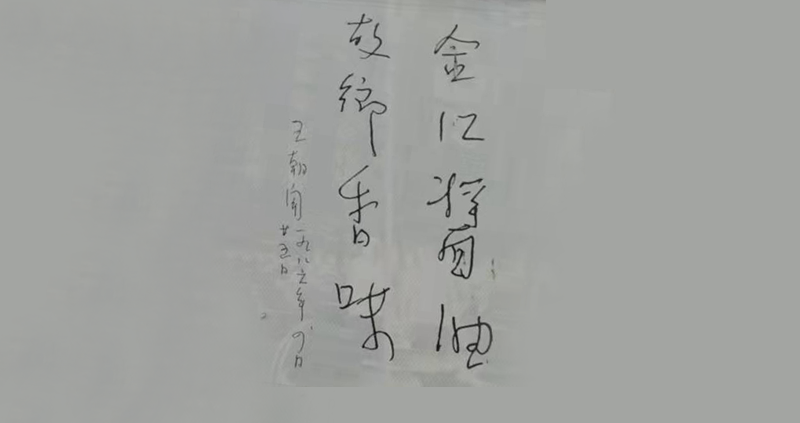 金江醬油
故鄉香味
王朝闻一九八三年月
廿五日